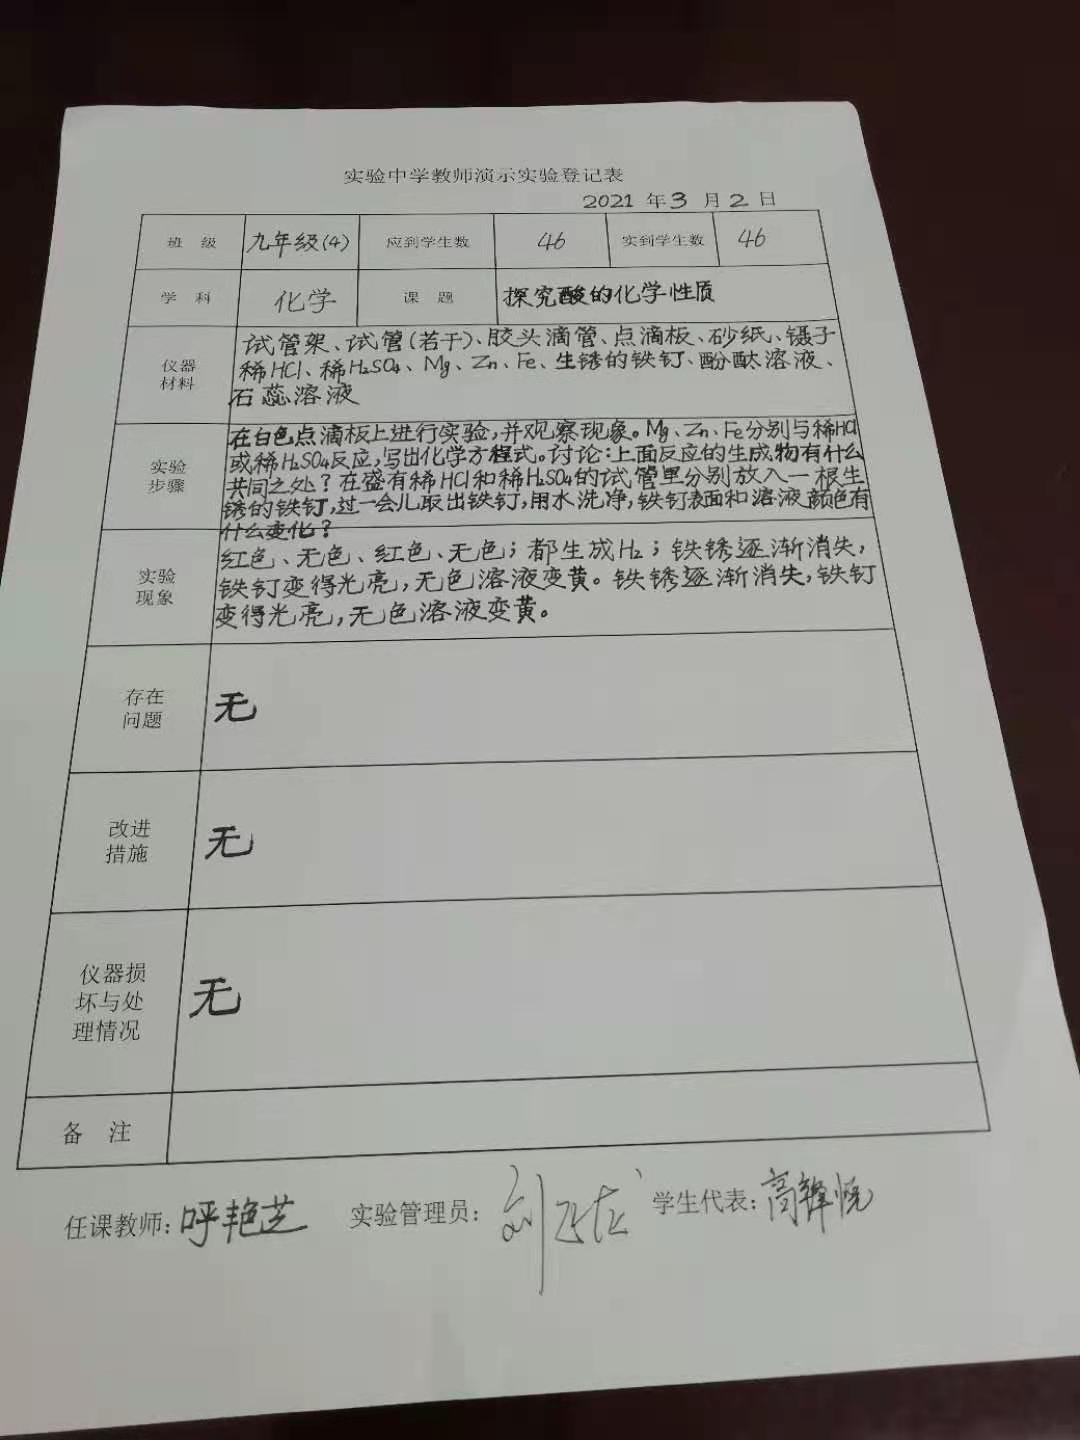 实验中学教师演示实验登记表
2021 年 3 月 2 日
班 级 九年级(4) 应到学生数 46 实到学生数 46
学 科 化学 课 题 探究酸的化学性质
仪器
材料
试管架、试管(若干)、胶头滴管、点滴板、砂纸、镊子
稀HCl、稀H₂SO₄、Mg、Zn、Fe、生锈的铁钉、酚酞溶液、
石蕊溶液
实验
步骤
在白色点滴板上进行实验,并观察现象。Mg、Zn、Fe分别与稀HCl
或稀H₂SO₄反应,写出化学方程式。讨论:上面反应的生成物有什么
共同之处?在盛有稀HCl和稀H₂SO₄的试管里分别放入一根生
锈的铁钉,过一会儿取出铁钉,用水洗净,铁钉表面和溶液颜色有
什么变化?
实验
现象
红色、无色、红色、无色;都生成H₂;铁锈逐渐消失,
铁钉变得光亮,无色溶液变黄。铁锈逐渐消失,铁钉
变得光亮,无色溶液变黄。
存在
问题
无
改进
措施
无
仪器损
坏与处
理情况
无
备 注
任课教师:呼艳芝 实验管理员: 学生代表: